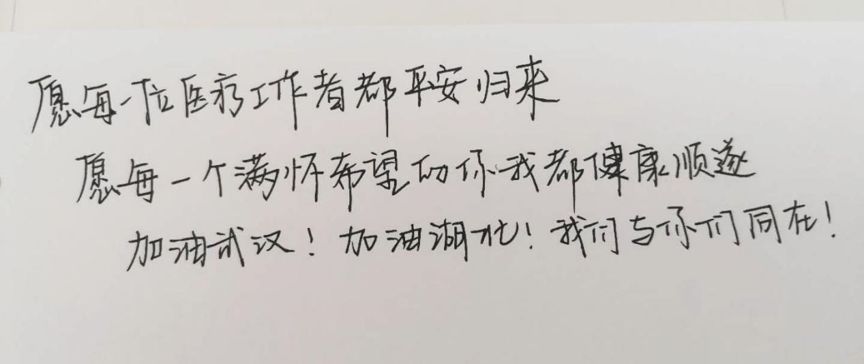 愿每一位医疗工作者都平安归来
愿每一个满怀希望的你我都健康顺遂
加油武汉！加油湖北！我们与你们同在！